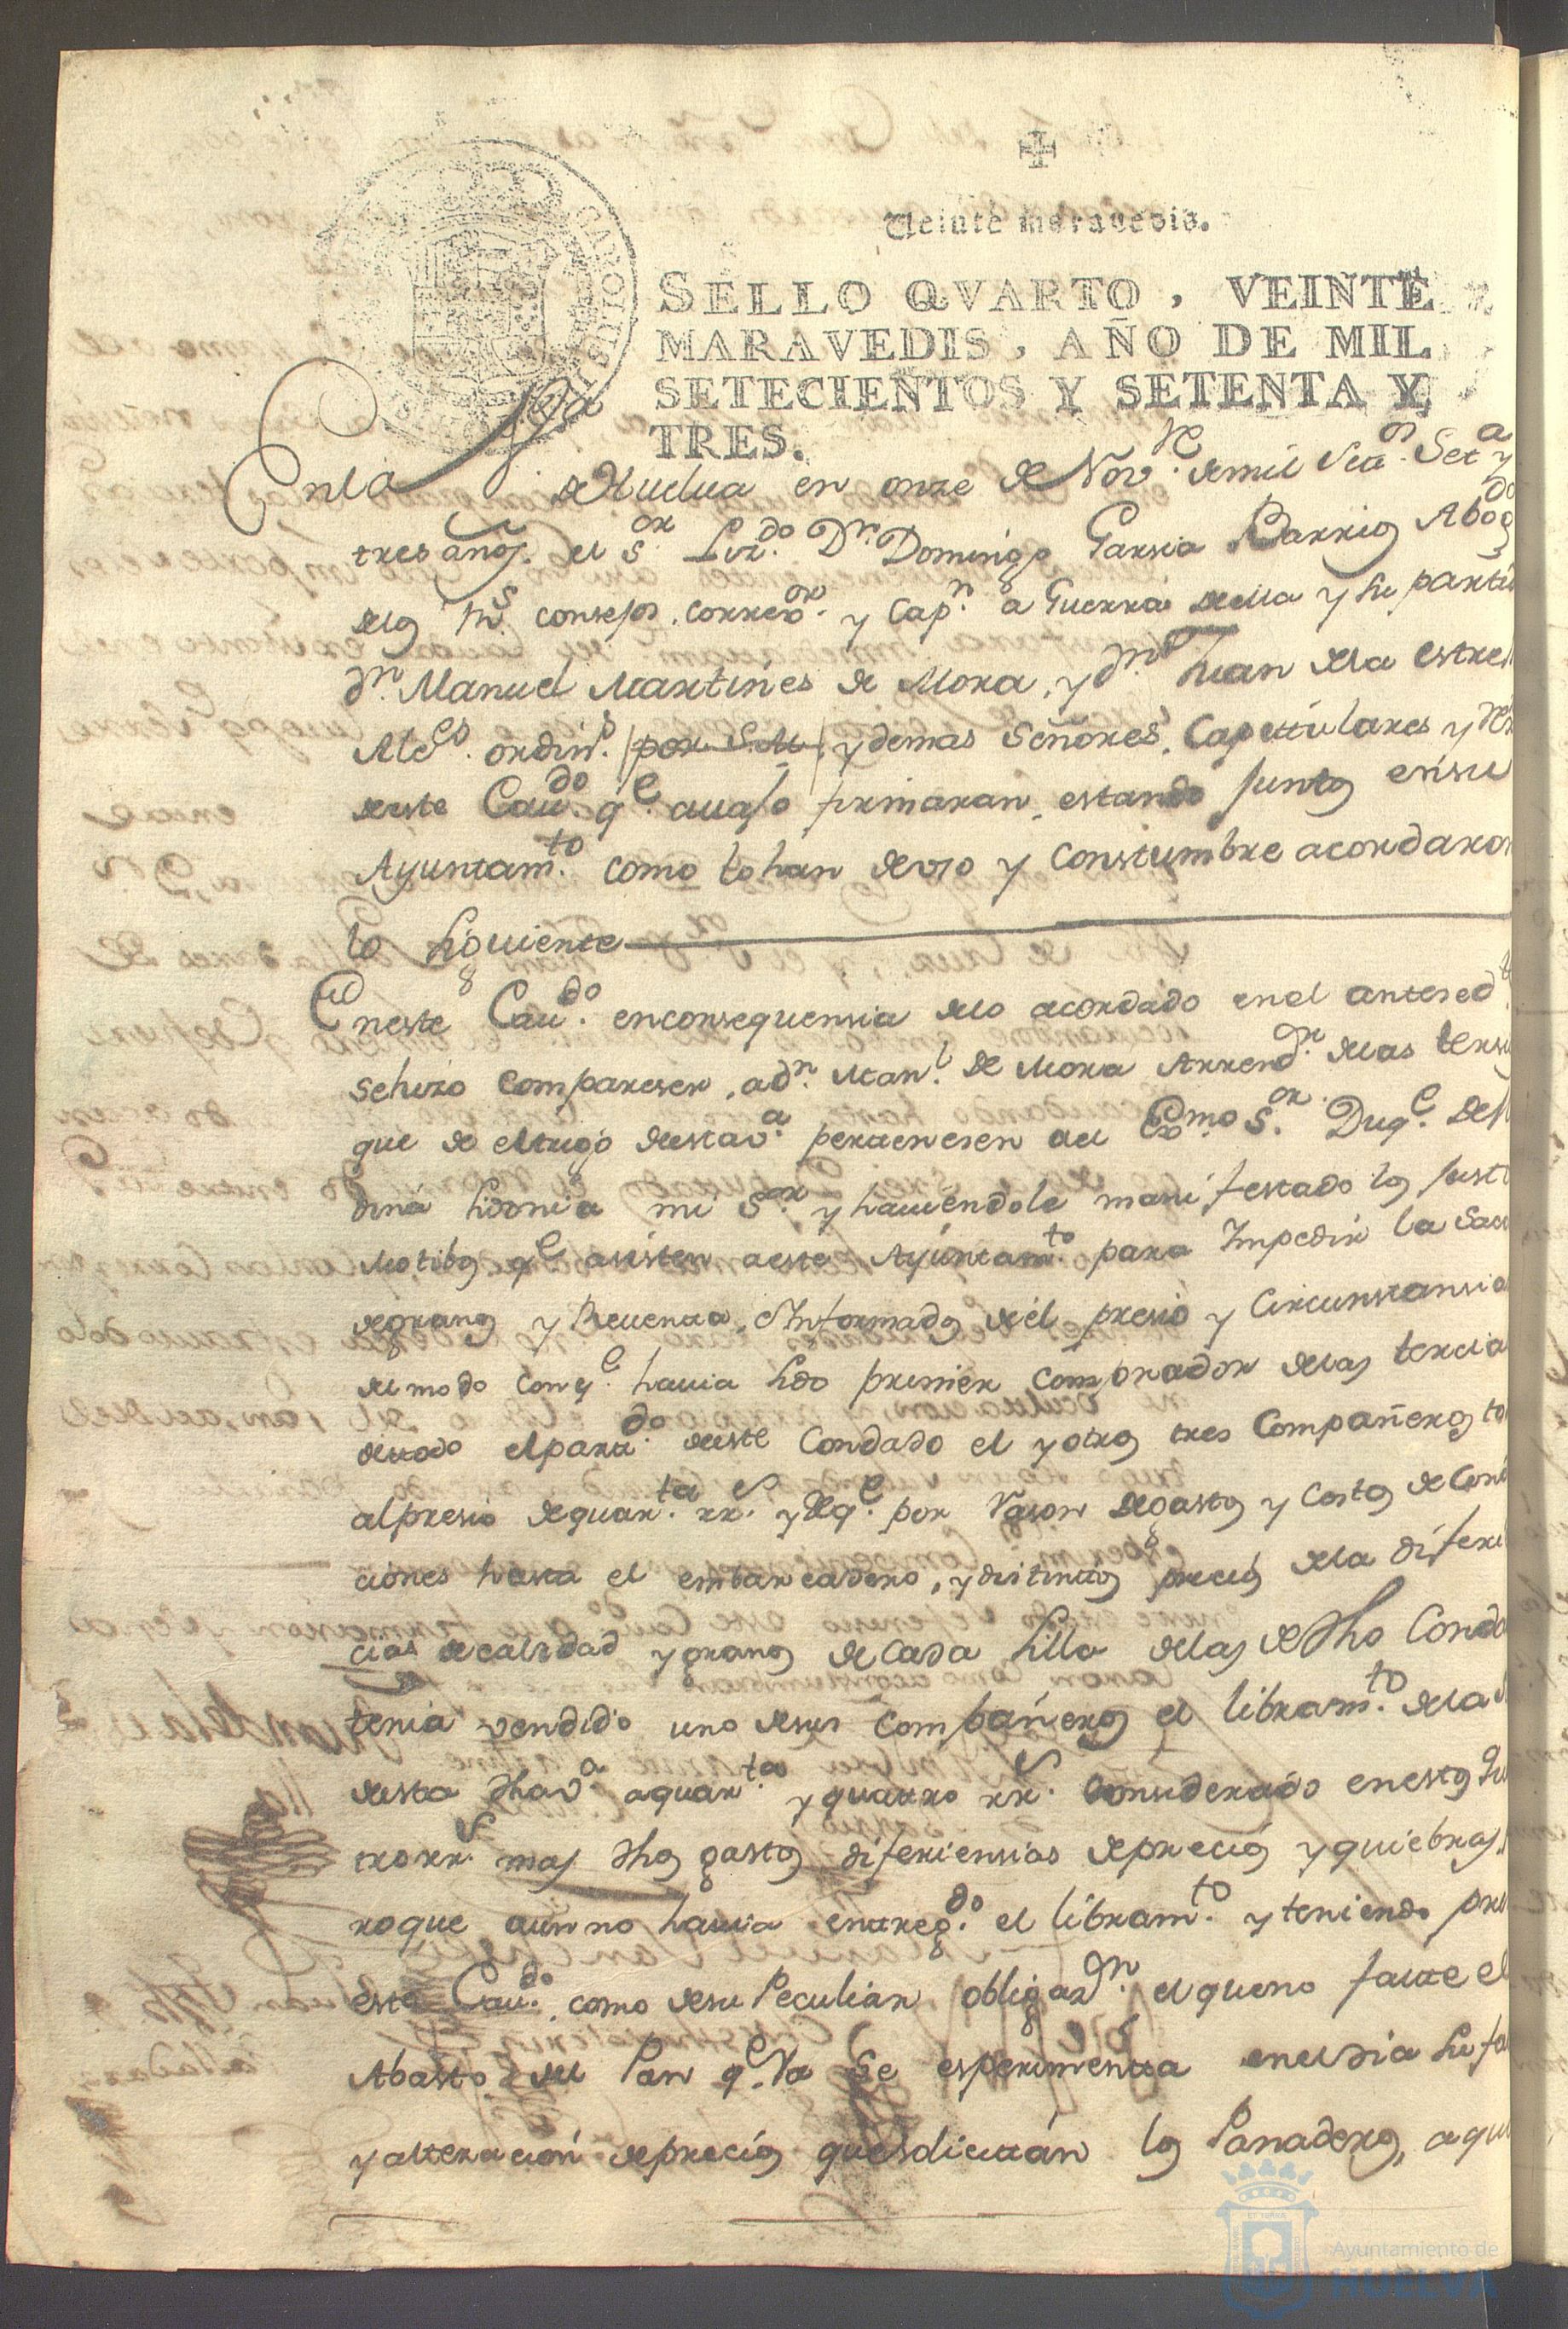 Veinte maravedis.
SELLO QVARTO, VEINTE
MARAVEDIS, AÑO DE MIL
SETECIENTOS Y SETENTA Y
TRES.
En la Vª de Huelua en onze de Novᵉ. de mil setᵒˢ. Setᵃ y
tres años. el Sᵒʳ. Lizᵈᵒ. Dⁿ. Domingo Garsia Barrios Abogᵈᵒ
de los Rˢ. consejos, Correxᵒʳ. y Capⁿ. a Guerra de ella y su partid
dⁿ. Manuel Martines de Mora, y dⁿ. Juan de la estrell
Alcᵉˢ. ordinˢ. por S. M. y demas Señores, Capitulares y
de este Cauᵈᵒ. qᵉ. auajo firmaran, estando juntos en su
Ayuntamᵗᵒ. como lo han de vso y Constumbre acordaron
lo siguiente
En este Cauᵈᵒ. en consequensia de lo acordado en el antesedᵗᵉ
se hizo compareser, a dⁿ. Manˡ. de Mora Arrendᵒʳ. de las tersi
que de el trigo de esta vᵃ. pertenesen al Exᵐᵒ Sᵒʳ. Duqᵉ. de M
dina Sidonia mi Sᵒʳ y hauiendole manifestado los just
Motibos qᵉ asisten a este Ayuntamᵗᵒ. para Impedir la Saca
de granos y Reuenta, e Informados de el presio y Circunstansia
del modo con qᵉ. hauia sido primer comprador de las tercia
de todo el partᵈᵒ. de este Condado el y otros tres Compañeros to
al presio de quarᵗᵃ. rrˢ. y qᵉ. por rason de gastos y Costos de Con
ciones hasta el embarcadero, y distintos precios de la diferi
cias de calidad y granos de Cada Silla de las de dho Condᵒ
tenia vendido uno de sus Compañeros el libramᵗᵒ. de la
de esta dha vᵃ a quarᵗᵃ. y quatro rrˢ. Considerado en estos qu
tro rrˢ mas dhos gastos diferiensias de precios y quiebras,
ro que aun no hauia entregᵈᵒ. el libramᵗᵒ. y teniendo pre
este Cauᵈᵒ. como de su Peculiar obligazⁿ. el que no falte el
Abasto del Pan qᵉ. Ya se esperimenta en el dia su fal
y alteracion de precios que solicitán los Panaderos, a que
Ayuntamiento de
HUELVA